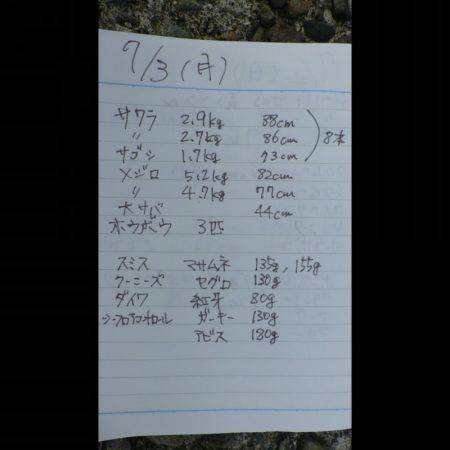 7/3(月)
サワラ 2.9kg 88cm
〃 2.7kg 86cm 8本
サゴシ 1.7kg 73cm
メジロ 5.2kg 82cm
〃 4.7kg 77cm
大サバ 44cm
ホウボウ 3匹
スミス マサムネ 135g, 155g
クーニーズ セグロ 130g
ダイワ 紅牙 80g
シーフロアコントロール ガーキー 130g
アビス 180g